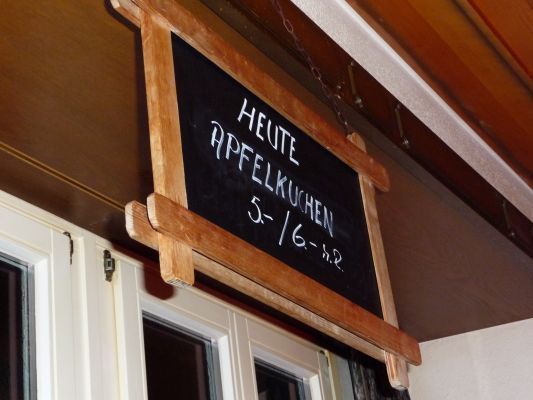 HEUTE
APFELKUCHEN
5.- / 6.- m.R.